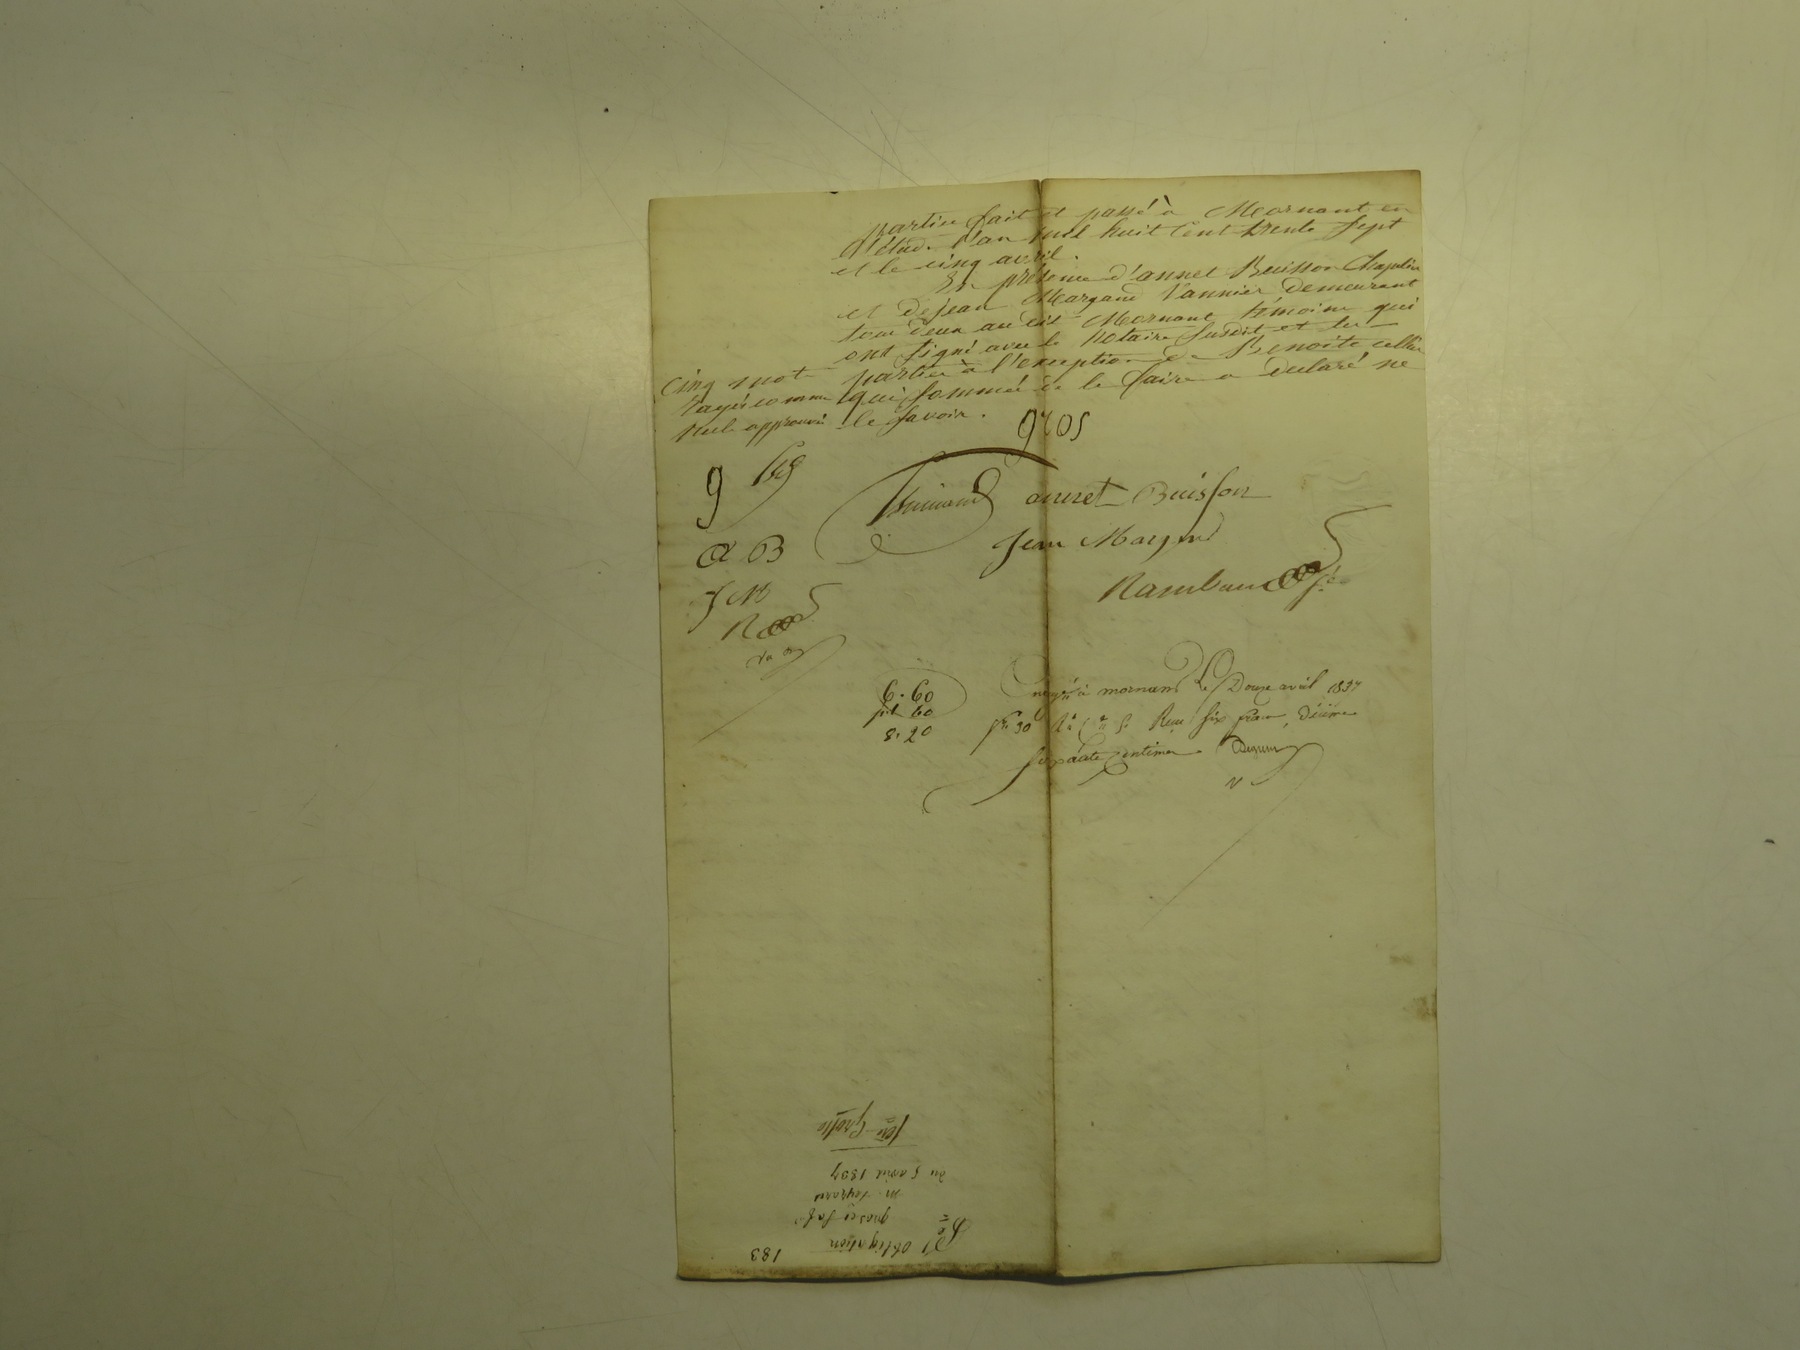 parties fait et passé à Mornant en
l'étude l'an mil huit cent trente sept
et le cinq avril.
En présence d'annet Buisson Chapelier
et de jean Margand Vannier demeurant
tous deux au dit Mornant témoins qui
ont signé avec le Notaire susdit et les
parties à l'exception de Benoite cellier
qui sommée de le faire a déclaré ne
le savoir.
cinq mots
rayés comme
nuls approuvés
gros
g
annet Buisson
a B
Jean Margand
J M
Rambaud
R
6.60
60
8.20
à mornant le Douze avril 1837
Reçu six francs, décime
soixante centimes
183
Obligation
gros
du 5 avril 1837
1ere Grosse